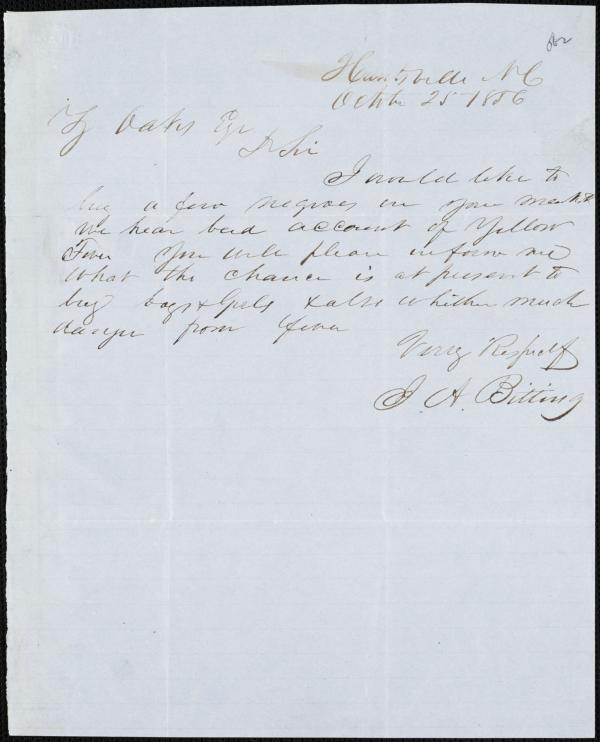 Huntsville NC
Octbr 25 1856
Z Oakes Eqr
D Sir
I would like to
buy a few negroes in your market
We hear bad account of Yellow
Fever You will please inform me
what the chance is at present to
buy boys & Girls & also whither much
danger from fever
Verry Respectf
J. A. Bitting